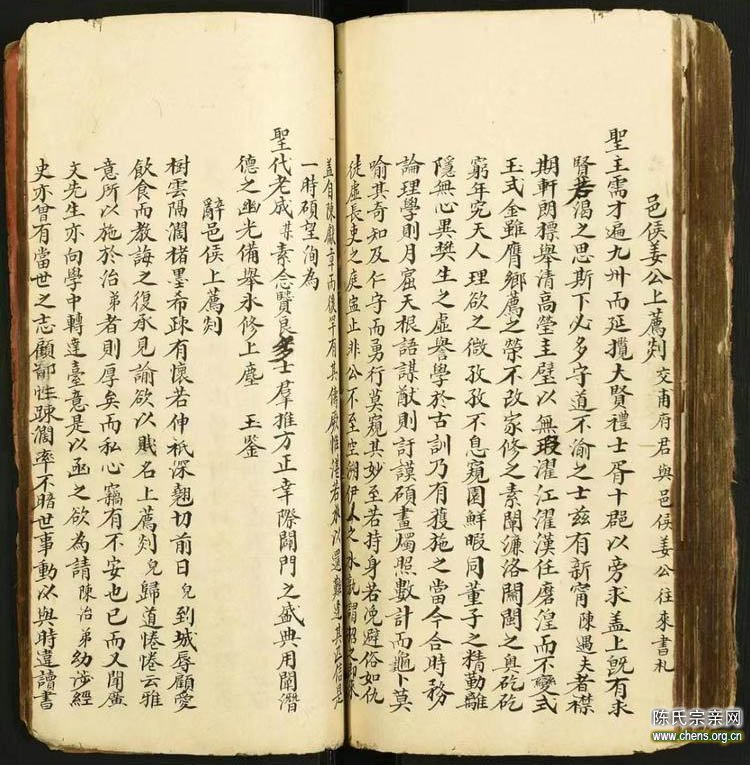 邑侯姜公上薦剡 交甫府君與邑侯姜公往來書札
聖主需才遍九州而延攬大賢禮士胥十郡以旁求盖上旣有求
賢若渴之思斯下必多守道不渝之士兹有新甯陳遇夫者襟
期軒朗標舉清高瑩主璧以無瑕濯江濯漢任磨湟而不變式
玉式金雖膺鄉薦之榮不改家修之素闡濂洛關閩之奥矻矻
窮年究天人理欲之微孜孜不息窺園鮮暇同董子之精勤離
隱無心異樊生之虛譽學於古訓乃有獲施之當今合時務
論理學則月窟天根語謀猷則訏謨碩畫燭照數計而龜卜莫
喻其奇知及仁守而勇行莫窺其妙至若持身若浼避俗如仇
徒虛長吏之庭室止非公不至空溯伊人之水
盖自陳獻章而後罕有其儔
一時碩望洵為
聖代老成謀素念賢良多士羣推方正幸際闢門之盛典用闡潛
德之幽光備舉氷修上塵 王鑒
辭邑侯上薦剡
樹雲隔濶楮墨希疎有懷若伸衹深翹切前日兒到城辱顧愛
飲食而教誨之復承見諭欲以賤名上薦剡兒歸道惓惓云雅
意所以施於治弟者則厚矣而私心竊有不安也已而又聞廣
文先生亦向學中轉達臺意是以亟之欲為請陳治弟幼涉經
史亦曾有當世之志顧鄙性疎濶率不暗世事動以與時違讀書
陈氏宗亲网
www.chens.org.cn